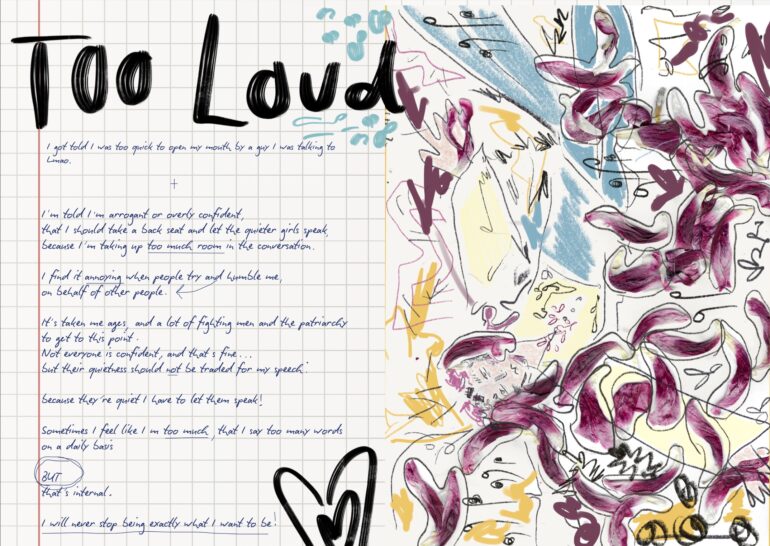 Too Loud
I got told I was too quick to open my mouth by a guy I was talking to
Lmao.
I'm told I'm arrogant or overly confident,
that I should take a back seat and let the quieter girls speak,
because I'm taking up too much room in the conversation.
I find it annoying when people try and humble me,
on behalf of other people.
It's taken me ages, and a lot of fighting men and the patriarchy
to get to this point.
Not everyone is confident, and that's fine...
but their quietness should not be traded for my speech:
because they're quiet I have to let them speak!
Sometimes I feel like I'm too much, that I say too many words
on a daily basis
BUT
that's internal.
I will never stop being exactly what I want to be!